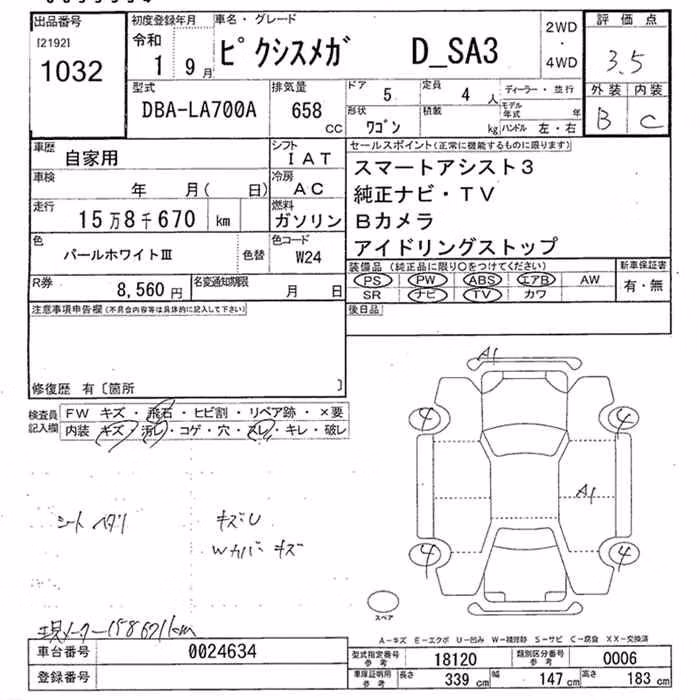 出品番号
[2192]
1032
初度登録年月
令和
1 9月
車名・グレード
ピクシスメガ D_SA3
2WD
・
4WD
評価点
3.5
外装 内装
B C
型式
DBA-LA700A
排気量
658
CC
ドア
5
定員
4 人
ディーラー・並行
形状
ワゴン
積載
kg
モデル年式 年
ハンドル 左・右
車歴
自家用
シフト
IAT
車検
年 月( 日)
冷房
AC
走行
15万8千670 km
燃料
ガソリン
色
パールホワイトⅢ
色替
色コード
W24
R券
8,560円
名変通知期限
月 日
セールスポイント(正常に機能するものに限ります)
スマートアシスト3
純正ナビ・TV
Bカメラ
アイドリングストップ
装備品 (純正品に限り○をつけてください)
PS PW ABS エアB AW
SR ナビ TV カワ
新車保証書
有・無
注意事項申告欄(不具合内容等は具体的に記入して下さい)
後日品
修復歴 有〔箇所 〕
検査員
記入欄
FW キズ・飛石・ヒビ割・リペア跡・×要
内装 キズ・汚レ・コゲ・穴・スレ・キレ・破レ
A1
4 4
A1
シート ヘタリ
キズU
Wカバー キズ
4 4
スペア
現メーター158671km
A－キズ E－エクボ U－凹み W－補修跡 S－サビ C－腐食 XX－交換済
車台番号
0024634
登録番号
型式指定番号
参考
18120
類別区分番号
参考
0006
車庫証明用
参考
長さ
339 cm
幅
147 cm
高さ
183 cm